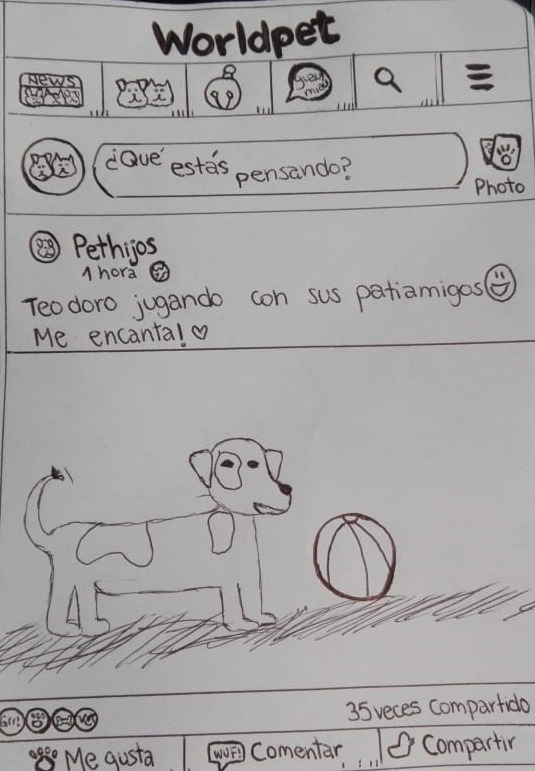 Worldpet
NEWS
guau
miau
¿Qué estás pensando?
Photo
Pethijos
1 hora
Teodoro jugando con sus patiamigos
Me encanta!
Grr!
35 veces compartido
Me gusta
WUF! Comentar
Compartir